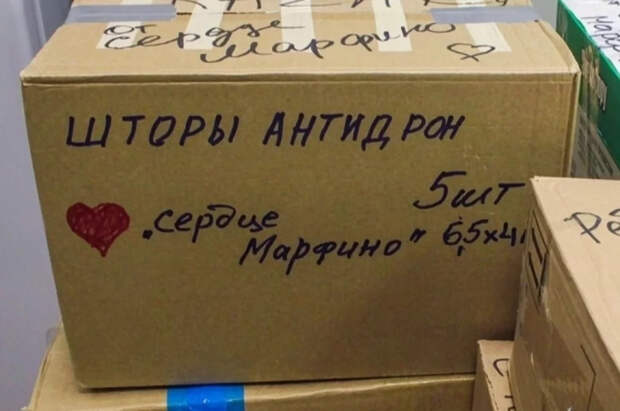 от сердце
Марфино
ШТОРЫ АНТИДРОН
5шт
„сердце
Марфино" 6,5х4